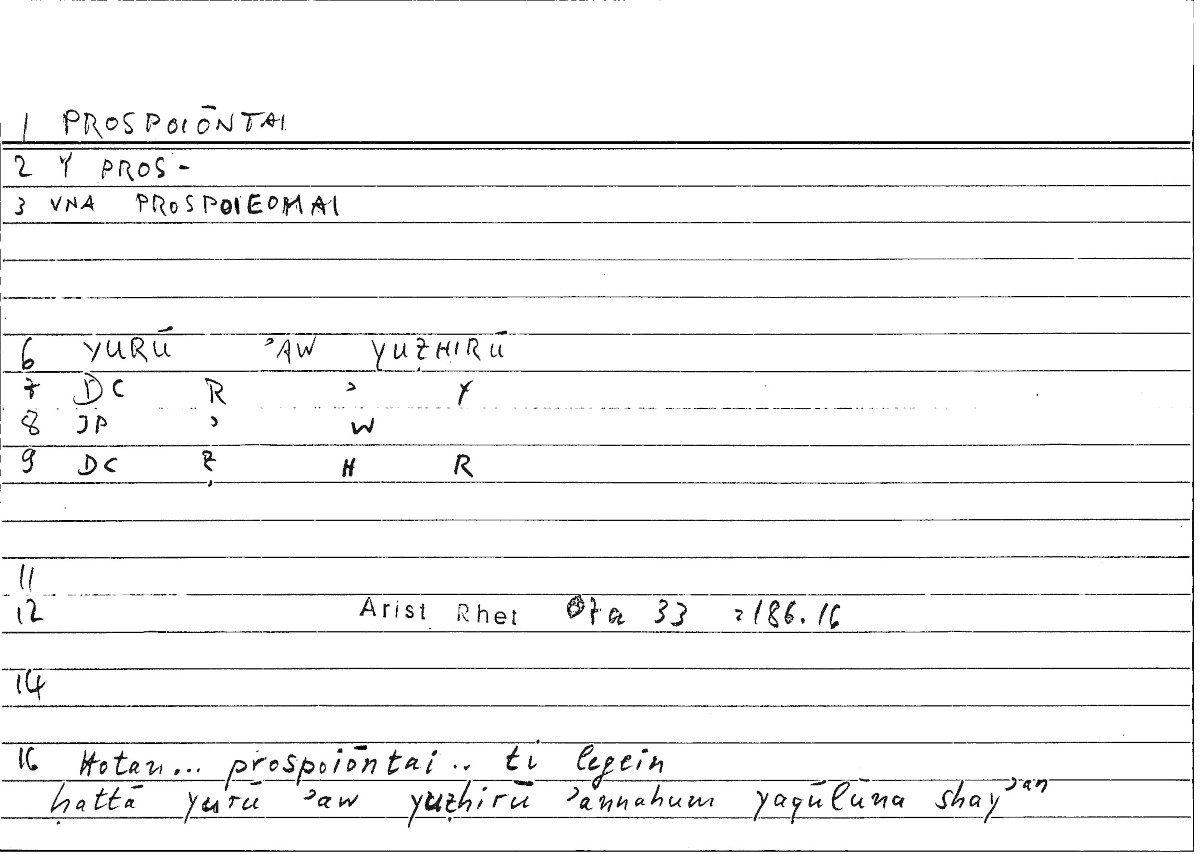 1 PROSPOIŌNTAI
2 Y PROS-
3 VNA PROSPOIEOMAI
6 YURŪ ʾAW YUẒHIRŪ
7 DC R ʾ Y
8 JP ʾ W
9 DC Ẓ H R
11
12 Arist Rhet 07a 33 =186.16
14
16 Hotan... prospoiōntai.. ti legein
ḥattā yurū ʾaw yuẓhirū ʾannahum yaqūlūna shayʾan